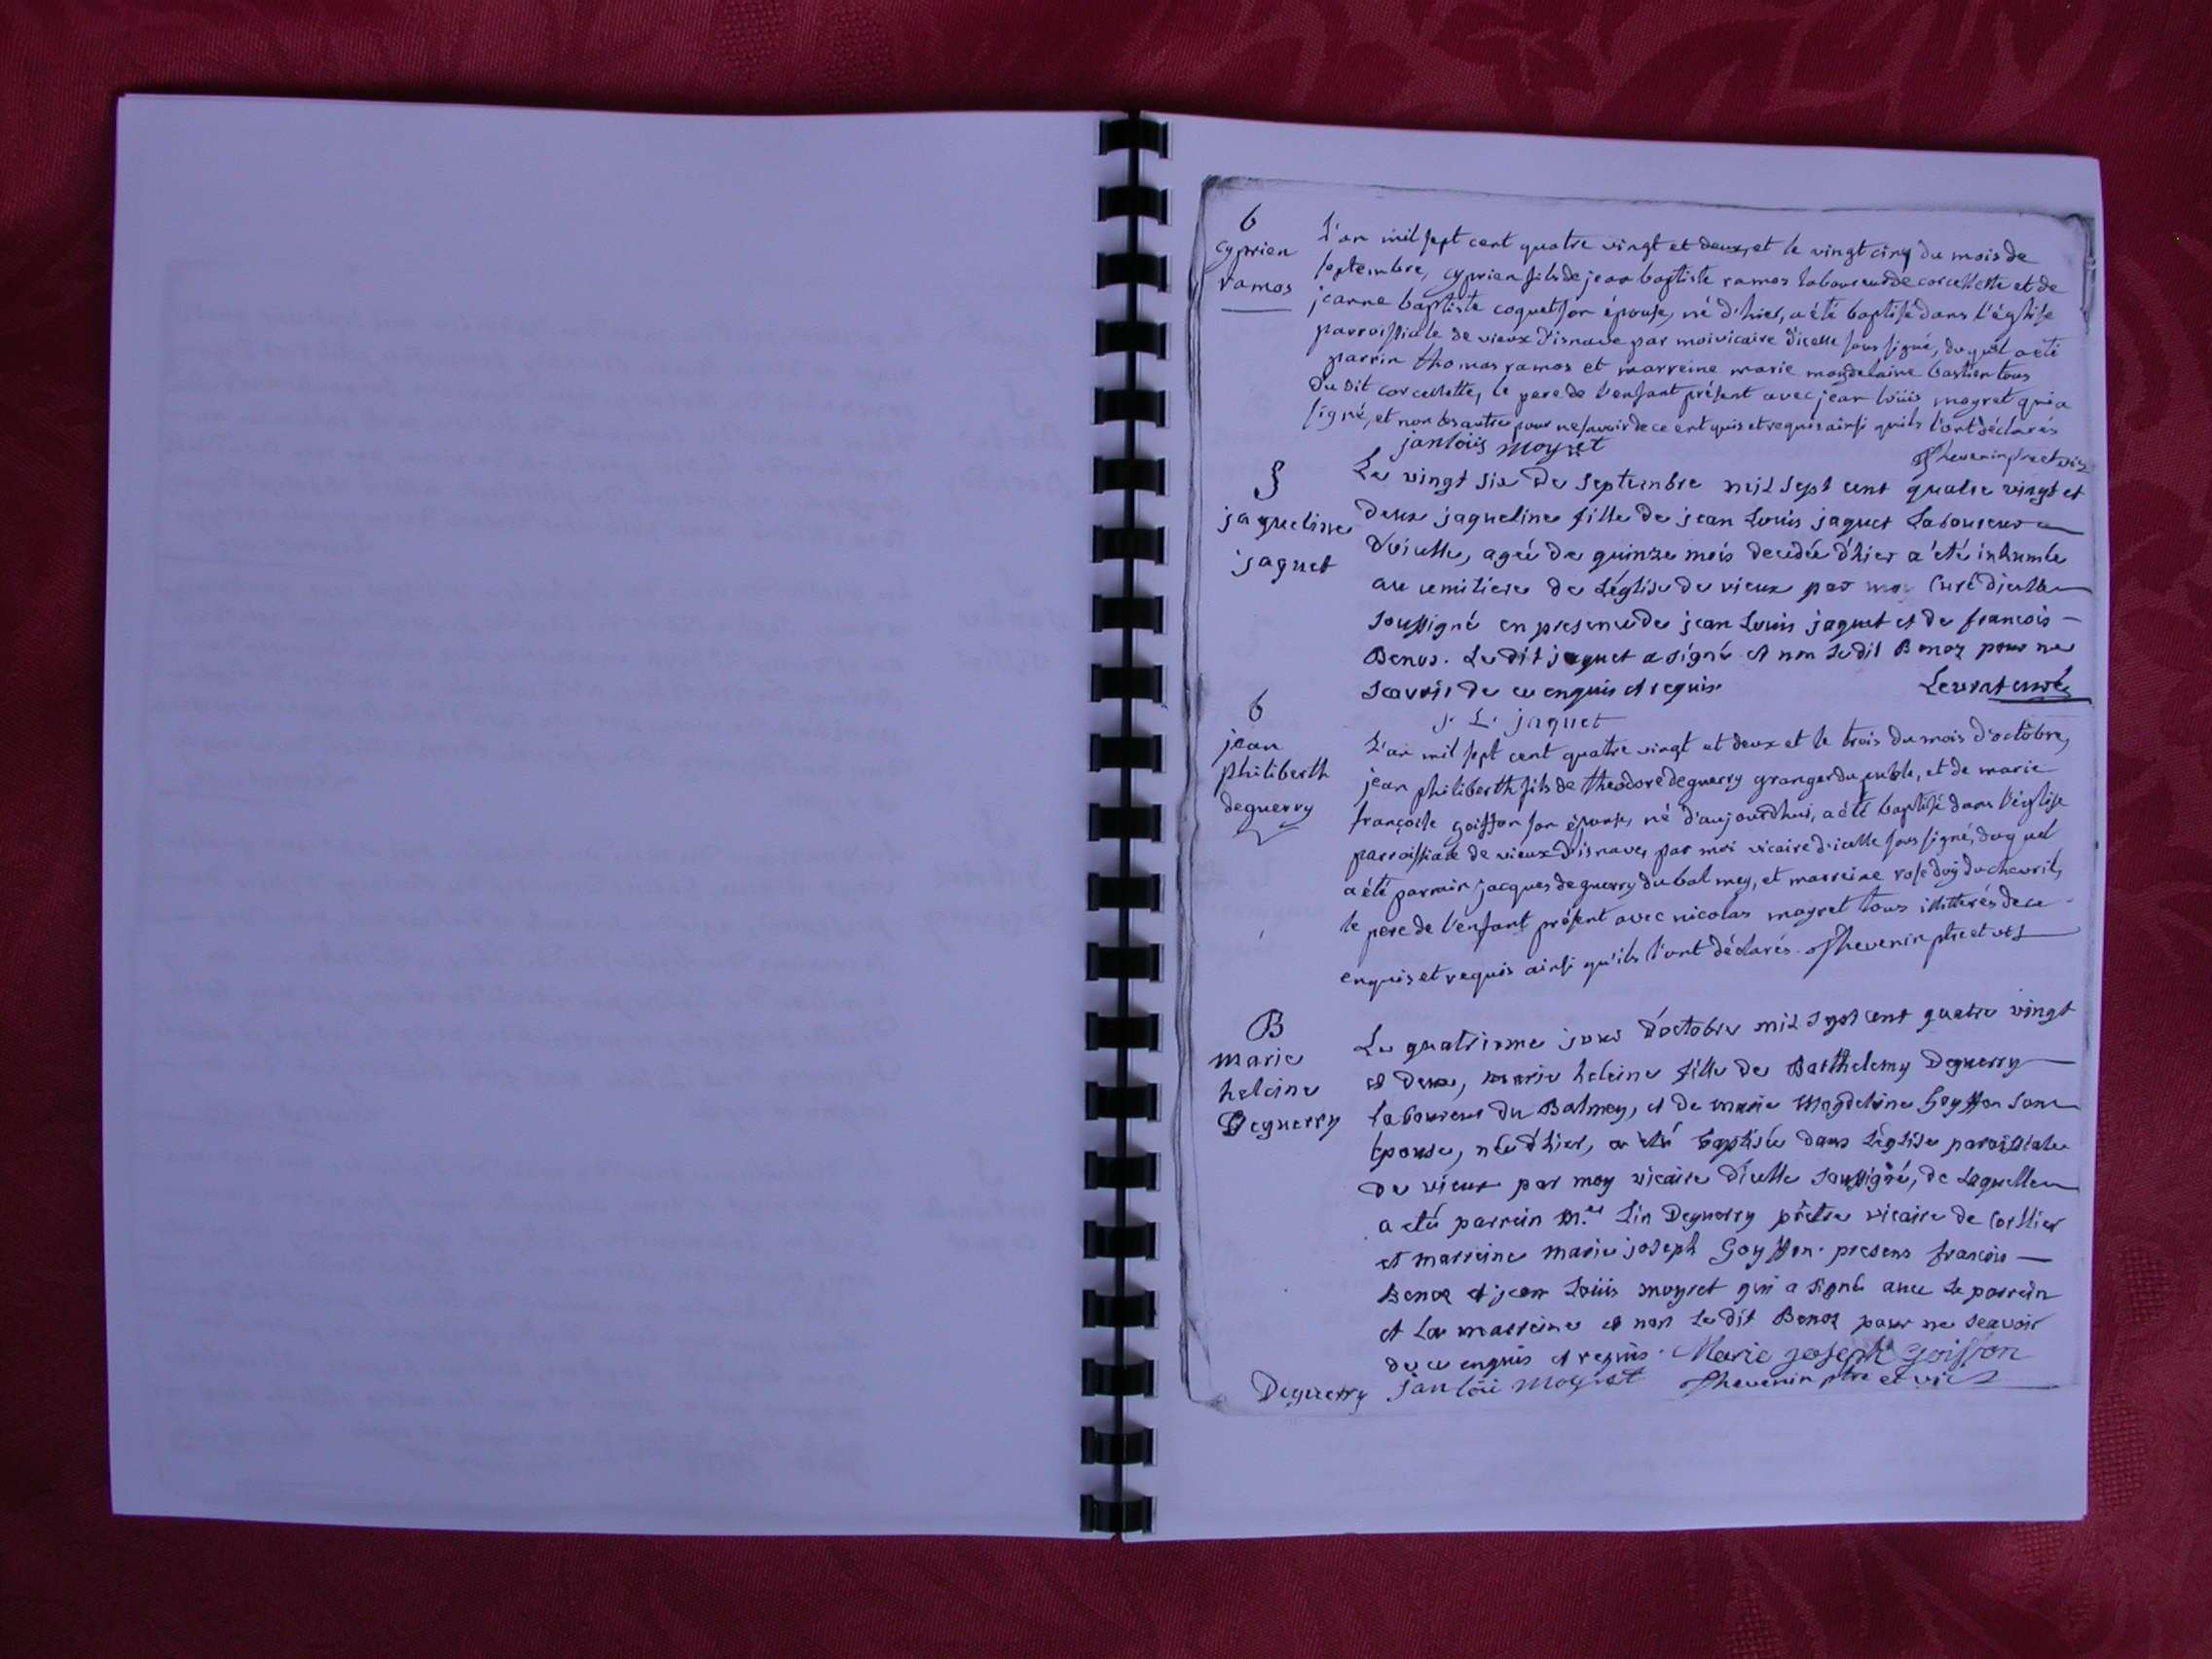 b
cyprien
ramos
l'an mil sept cent quatre vingt et deux, et le vingt cinq du mois de
septembre, cyprien fils de jean baptiste ramos laboureur de corcelette et de
jeanne baptiste coquet son épouse, né d'hier, a été baptisé dans l'église
parroissiale de vieux d'isnave par moi vicaire d'icelle sous signé, duquel a été
parrin thomas ramos et marreine marie magdelaine bastien tous
du dit corcellette, le pere de l'enfant présent avec jean loüis moyret qui a
signé, et non les autres pour ne savoir de ce enquis et requis ainsi qu'ils l'ont déclarés
janloüis moyret
Thevenin ptre et vic
S
jaqueline
jaquet
Le vingt six de septembre mil sept cent quatre vingt et
deux jaqueline fille de jean Louis jaquet Laboureur
d'icelle, ageé de quinze mois decedée d'hier a été inhumée
au cemitiere de L'église de vieux par moy Curé d'icelle
soussigné en presence de jean Louis jaquet et de francois
Benoz. Le dit jaquet a signé et non Le dit Benoz pour ne
scavoir de ce enquis et requis
Levrat curé
j. L. jaquet
b
jean
philiberth
deguerry
L'an mil sept cent quatre vingt et deux et le trois du mois d'octobre,
jean philiberth fils de theodore deguerry granger du , et de marie
françoise goiffon son épouse, né d'aujourdhui, a été baptisé dans l'église
parroissiale de vieux d'isnave, par moi vicaire d'icelle sous signé, duquel
a été parrain jacques deguerry du balmey, et marreine rose du chevril,
le pere de l'enfant présent avec nicolas moyret tous illitterés de ce
enquis et requis ainsi qu'ils l'ont déclarés. Thevenin ptre et vic
B
marie
heleine
Deguerry
Le quatrieme jour d'octobre mil sept cent quatre vingt
et deux, marie heleine fille de Barthelemy Deguerry
Laboureur du Balmey, et de marie Magdeleine Goyffon son
épouse, née d'hier, a été baptisée dans L'église paroissiale
de vieux par moy vicaire d'icelle soussigné, de Laquelle
a été parrein m.re Lin Deguerry prêtre vicaire de Corlier
et marreine marie joseph Goyffon. presens francois
Benoz et jean Loüis moyret qui a signé avec Le parrein
et La marreine et non Le dit Benoz pour ne scavoir
de ce enquis et requis. Marie joseph goiffon
Deguerry janloüi moyret Thevenin ptre et vic